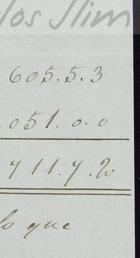 los Slim
605.5.3
051.0.0
711.7.2
lo que